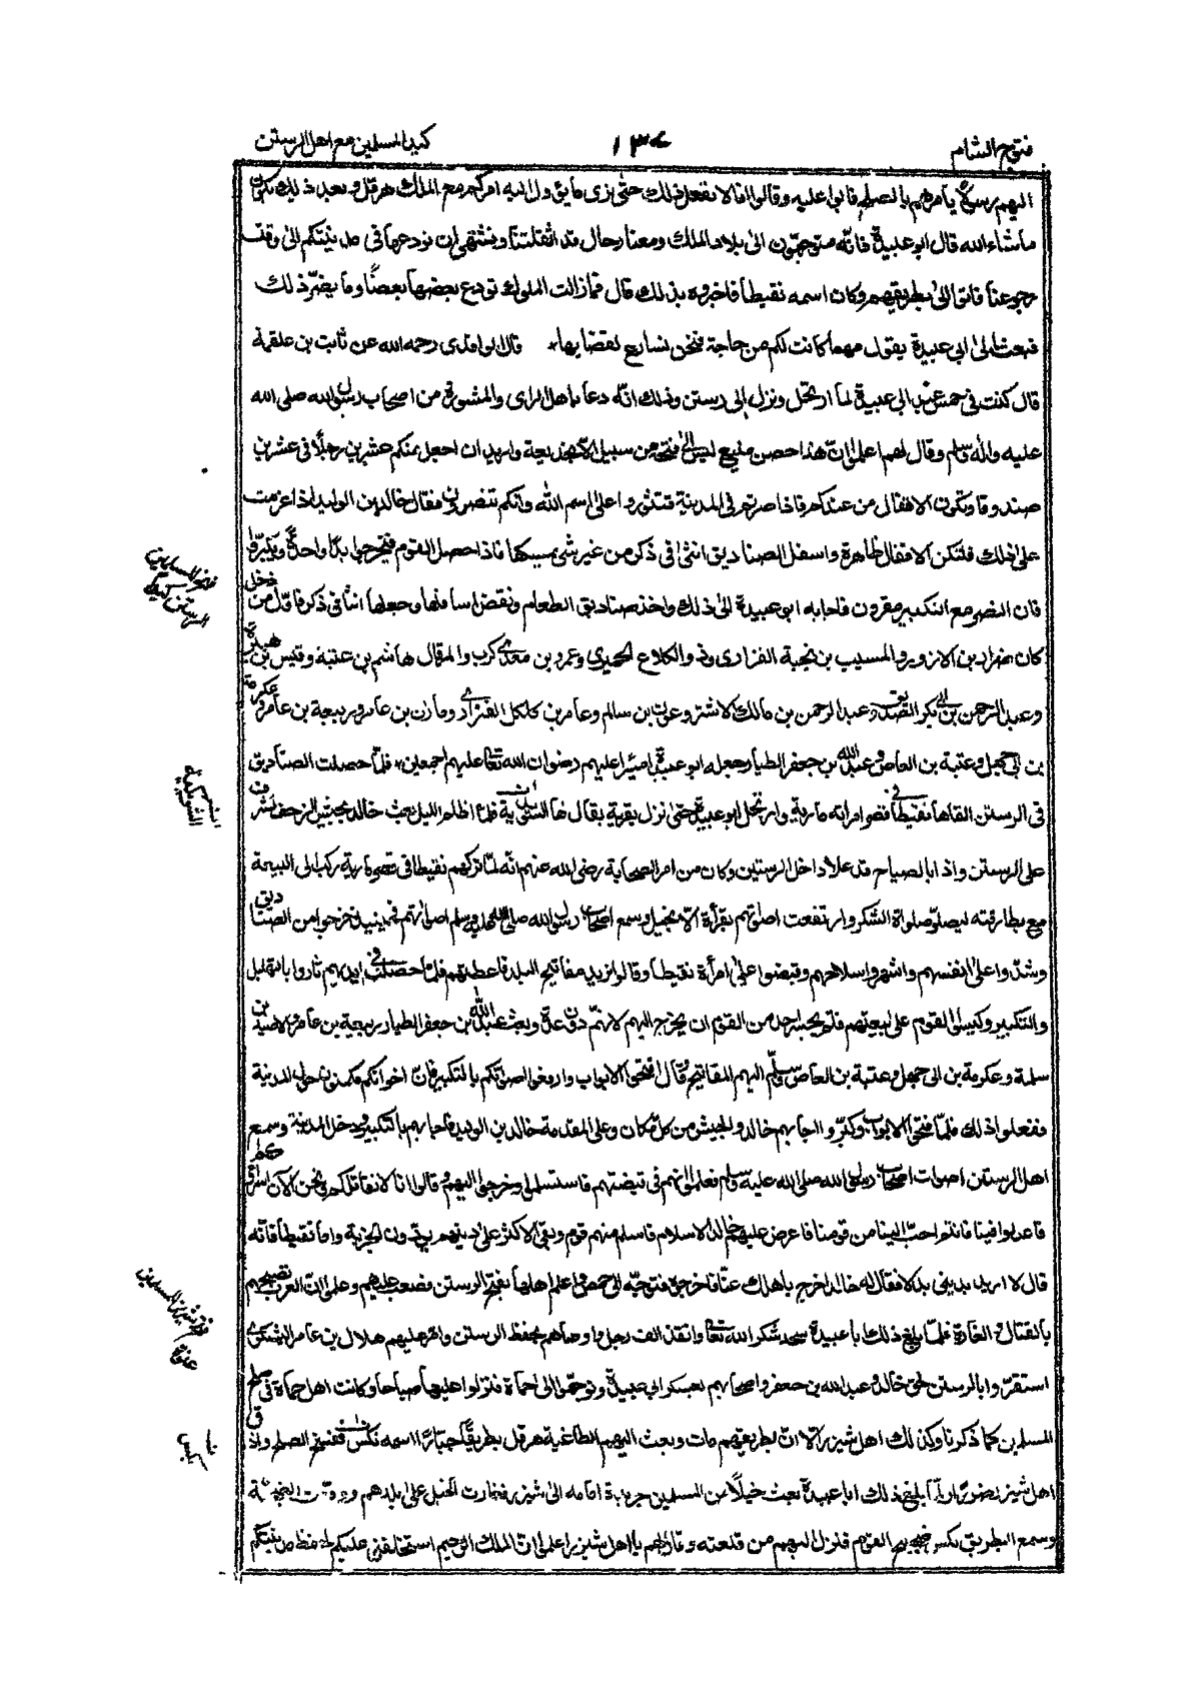 فتوح الشام
١٣٤
كيد المسلمين مع اهل الرستن
اليهم رسولا يأمرهم بالصلح فابوا عليه وقالوا انا لا نفعل ذلك حتى نرى ما يؤول اليه امركم مع الملك هرقل وبعد ذلك يكون
ماشاء الله قال ابو عبيدة فانّه متوجهون الى بلاد الملك ومعنا رحال قد اثقلتنا ونشتهى ان نودعها فى مدينتكم الى وقت
رجوعنا فاتى الى بطريقهم وكان اسمه نقيطا فاخبروه بذلك قال فما زالت الملوك تودع بعضها بعضًا وما يضرّ ذلك
فبعث الى ابى عبيدة يقول مهما كانت لكم من حاجة فنحن نسارع لقضايها قال الواقدى رحمه الله عن ثابت بن علقمة
قال كنت فى حمص عند ابى عبيدة لما ارتحل ونزل الى رستن وذلك انّه دعا باهل الراى والمشورة من اصحاب رسول الله صلى الله
عليه واله وسلم وقال لهم اعلموا انّ هذا حصن منيع ليس الى فتحه من سبيل الا بخديعة واريد ان اجعل منكم عشرين رجلًا فى عشرين
صندوقا وتكون الاقفال من عندكم فاذا صرتم فى المدينة فتثوروا على اسم الله وانكم تنصرون فقال خالد بن الوليد اذا عزمت
على ذلك فلتكن الاقفال ظاهرة واسفل الصناديق انثى فى ذكر من غير شئ يمسكها فاذا حصل القوم فيخرجوا يدًا واحدة ويكبروا
فان النصر مع التكبير مقرون فاجابه ابو عبيدة الى ذلك واخذ صناديق الطعام ونقض اسافلها وجعلها انثا فى ذكر فاوّل من دخل
كان ضرار بن الازور والمسيب بن نجبة الفزارى وذو الكلاع الحميرى وعمرو بن معدى كرب والمرقال هاشم بن عتبة وقيس بن هبيرة
وعبد الرحمن بن ابى بكر الصديق وعبد الرحمن بن مالك الاشتر وعون بن سالم وعامر بن كلكل الفزارى ومازن بن عامر وربيعة بن عامر وعكرمة
بن ابى جهل وعتبة بن العاص وعبد الله بن جعفر الطيار وجعله ابو عبيدة اميرًا عليهم رضوان الله تعالى عليهم اجمعين فلمّا حصلت الصناديق
فى الرستن القاها نقيطا فى قصر امراته مارية وارتحل ابو عبيدة حتى نزل بقرية يقال لها السويدية فلما اظلم الليل بعث خالد بجيش الزحف ليشرف
على الرستن واذا بالصياح قد علا داخل الرستين وكان من امر الصحابة رضى الله عنهم انّه لمّا تركهم نقيطا فى قصر مارية ركب الى البيعة
مع بطارقته ليصلوا صلواة الشكر وارتفعت اصواتهم بقرأة الانجيل وسمع اصحاب رسول الله صلى الله عليه وسلم اصواتهم فحينيذ خرجوا من الصناديق
وشدّوا على انفسهم واشهروا سلاحهم وقبضوا على امرأة نقيطا وقالوا نريد مفاتيح البلد فاعطتهم فلمّا حصلت فى ايديهم ثاروا بالتهليل
والتكبير وكبسوا القوم على بيعتهم فلم يجسر احد من القوم ان يخرج اليهم لانّهم دون عدة وبعث عبد الله بن جعفر الطيار ربيعة بن عامر والاصيد بن
سلمة وعكرمة بن ابى جهل وعتبة بن العاص وسلّم اليهم المفاتيح وقال افتحوا الابواب وارفعوا اصواتكم بالتكبير فانّ اخوانكم مكمنون حول المدينة
ففعلوا ذلك فلمّا فتحوا الابواب وكبّروا اجابهم خالد والجيش من كل مكان وعلى المقدمة خالد بن الوليد فاجابهم بالتكبير ودخل المدينة وسمع
اهل الرستن اصوات اصحاب رسول الله صلى الله عليه وسلم فعلموا انهم فى قبضتهم فاستسلموا وخرجوا اليهم وقالوا انا لا نقاتلكم ونحن الآن اسراكم
فاعدلوا فينا فانتم احبّ الينا من قومنا فاعرض عليهم خالد الاسلام فاسلم منهم قوم وبقى الاكثر على دينهم يؤدون الجزية واما نقيطا فانّه
قال لا اريد بدينى بدلا فقال له خالد اخرج باهلك عنّا فاخرجه فتوجّه الى حمص واعلم اهلها بفتح الرستن فصعب عليهم وعلموا انّ العرب تصبحهم
بالقتال والغارة فلمّا بلغ ذلك ابا عبيدة سجد شكرا لله تعالى وانفذ الف رجل واوصاهم بحفظ الرستن وامّر عليهم هلال بن عامر اليشكرى
استقرّوا بالرستن لحق خالد وعبد الله بن جعفر واصحابهم بعسكر ابى عبيدة وتوجّهوا الى حماة فنزلوا عليها صباحا وكانت اهل حماة فى صلح
المسلمين كما ذكرنا وكذلك اهل شيزر الّا انّ بطريقهم مات وبعث اليهم الطاغية هرقل بطريقًا جبّارًا اسمه نكس ففسخ الصلح واذاق
اهل شيزر بلغ ذلك ابا عبيدة بعث خيلًا من المسلمين جريدة امامه الى شيزر فغارت الخيل على بلدهم
وسمع البطريق نكس ضجيج القوم فنزل اليهم من قلعته وقال لهم يا اهل شيزر اعلموا انّ الملك الرحيم استخلفنى عليكم لاحفظ مدينتكم
فتح المسلمين
الرستن كيدا
فتح شيزر المسلمين
عنوة
نكس